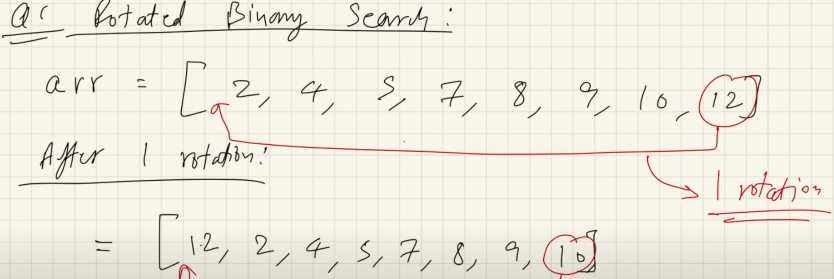 Q: Rotated Binary Search:
arr = [2, 4, 5, 7, 8, 9, 10, 12]
After 1 rotation:
1 rotation
= [12, 2, 4, 5, 7, 8, 9, 10]